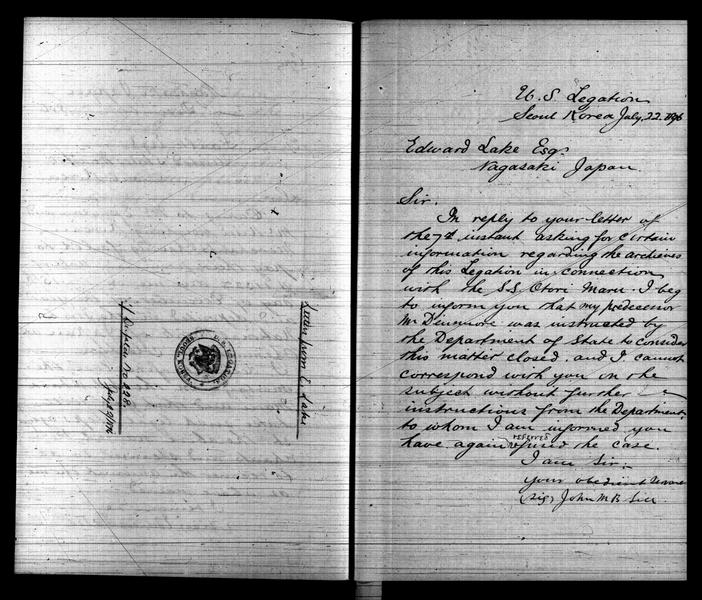 U.S Legation
Seoul Korea July, 22. 1896
Edward Lake Esq.
Nagasaki Japan
Sir.
In reply to your letter of
the 7th instant asking for certain
information regarding the archives
of this Legation in connection
with the S.S. Otori Maru. I beg
to inform you that my predecessor
Mr Dinsmore was instructed by
the Department of State to consider
this matter closed. and I cannot
correspond with you on the
subject without further
instructions from the Department,
to whom I am informed you
have again referred the case.
I am Sir.
your obedient servant
(sig) John M B Sill
Letter from E Lake
Despatch No 228